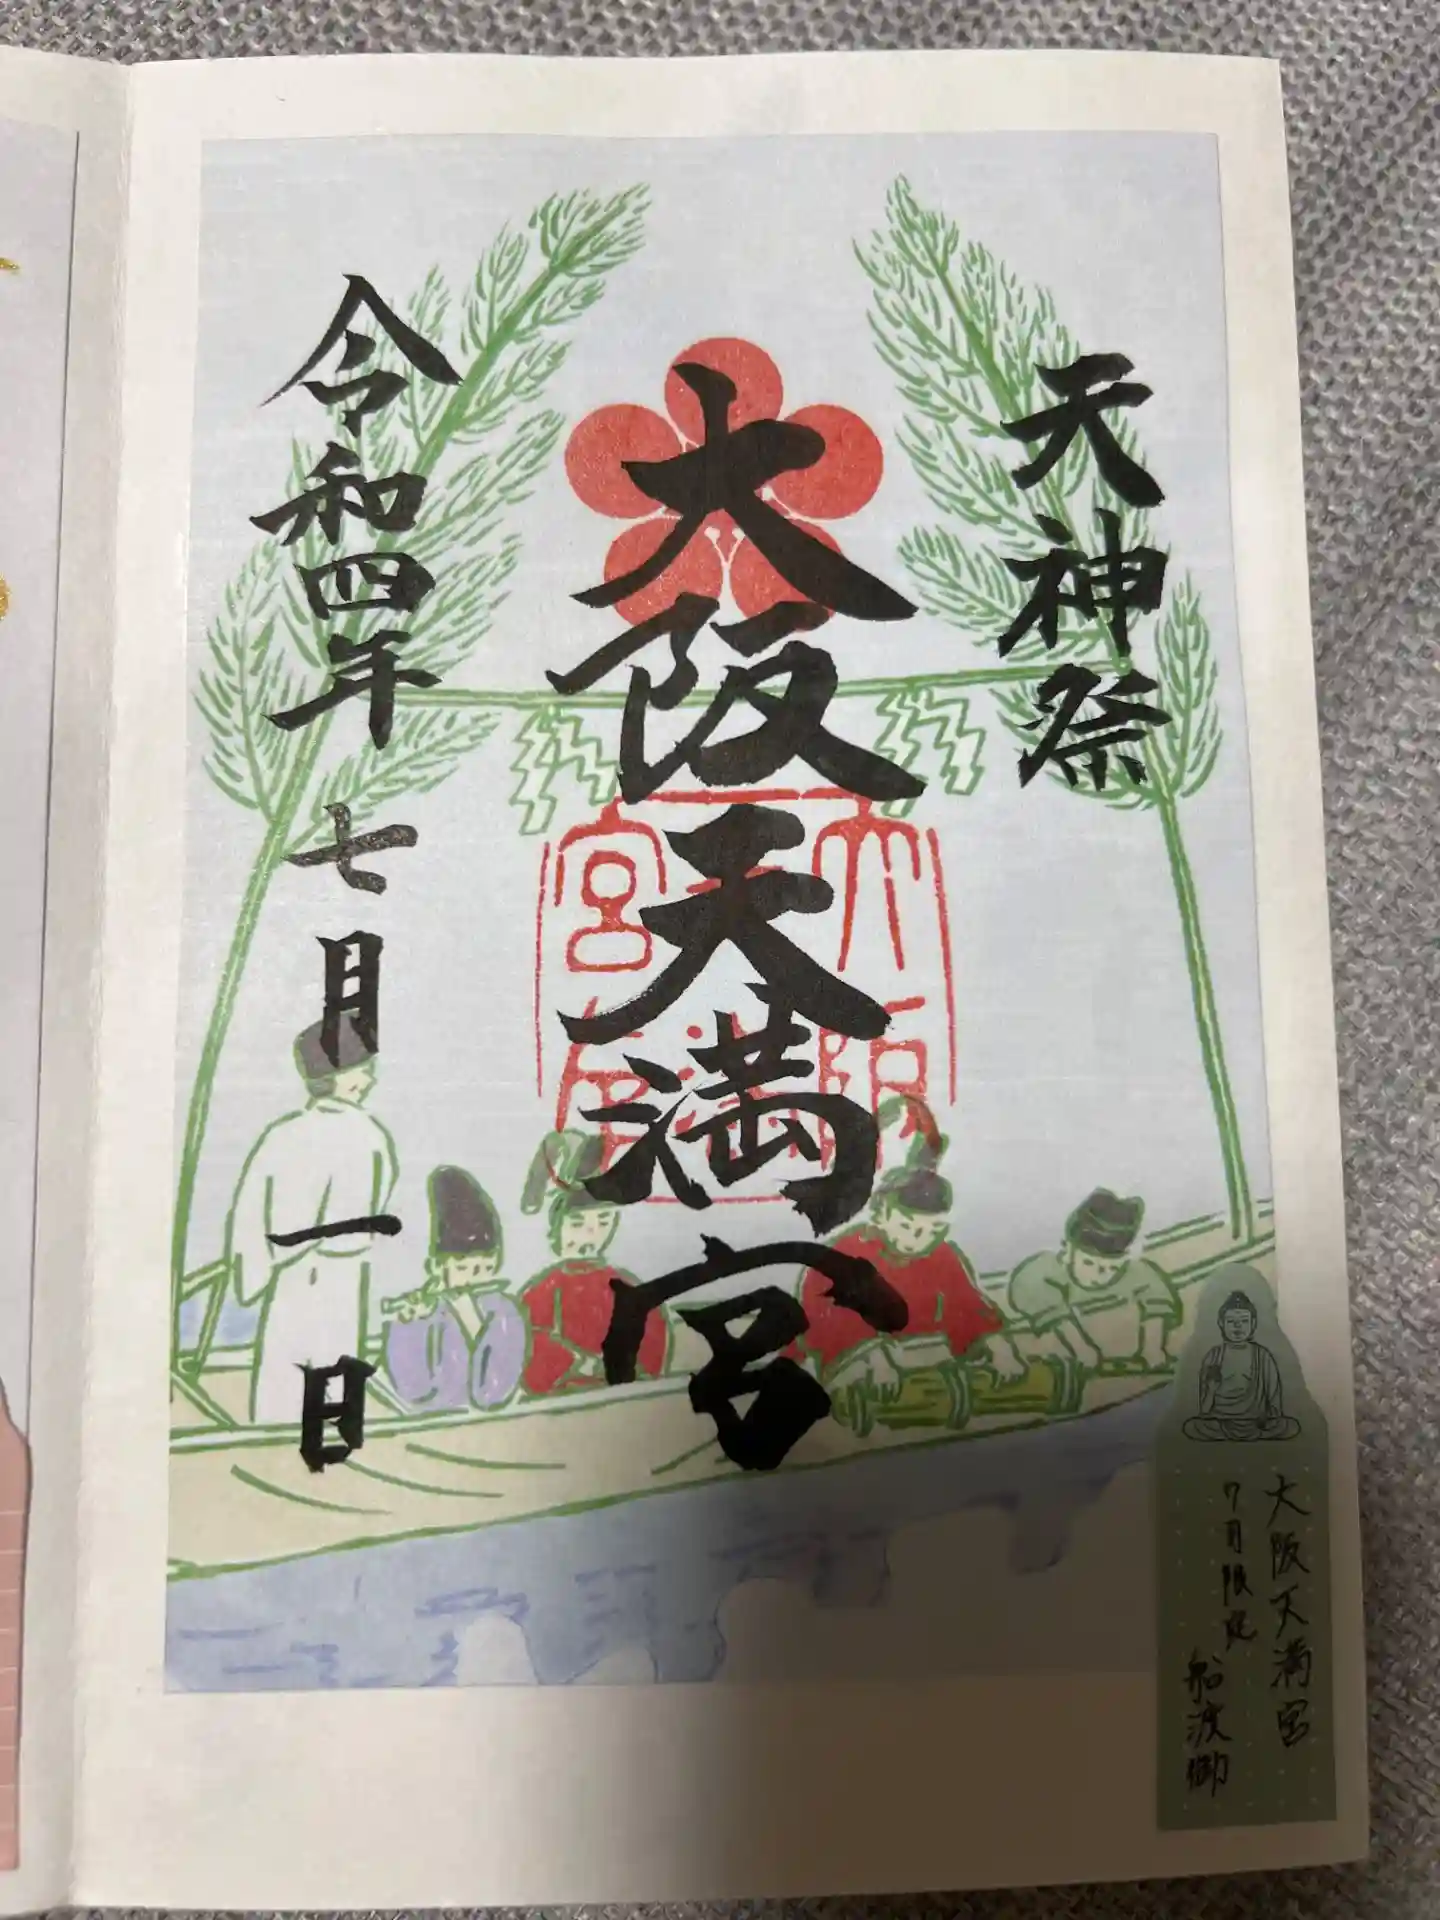 天神祭
大阪天満宮
令和四年 七月 一日
大阪天満宮
大阪天満宮
7月限定
船渡御